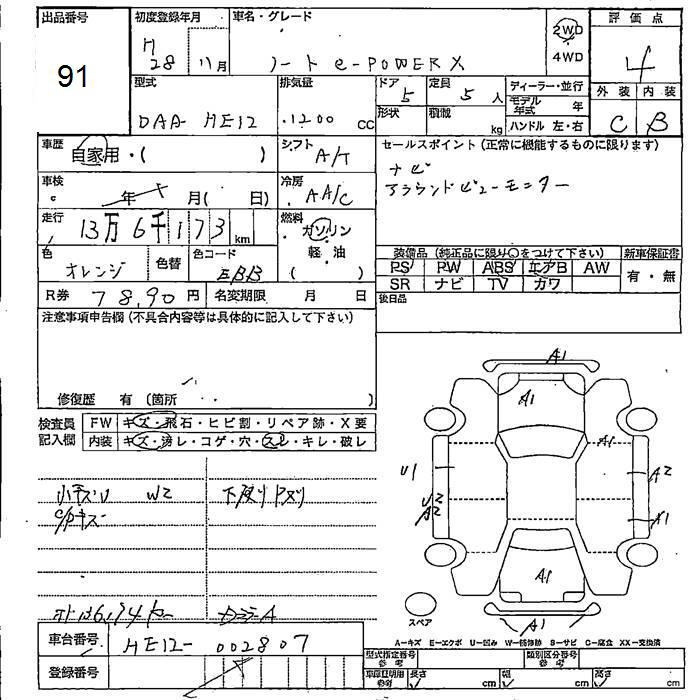 出品番号
91
初度登録年月
H
28 11月
車名・グレード
ノート e-POWER X
2WD
・
4WD
評価点
4
外装 内装
C B
型式
DAA- HE12
排気量
1200 CC
ドア 5
形状
定員 5 人
積載 kg
ディーラー・並行
モデル年式 年
ハンドル 左・右
車歴 自家用・( )
シフト A/T
セールスポイント (正常に機能するものに限ります)
ナビ
アラウンドビューモニター
車検 年 月( 日)
冷房 AA/C
走行 13万6千173km
燃料 ガソリン
軽油
( )
色 オレンジ 色替 色コード EBB
装備品 (純正品に限り○をつけて下さい) 新車保証書
PS PW ABS エアB AW 有・無
SR ナビ TV カワ
R券 7890円 名変期限 月 日
後日品
注意事項申告欄 (不具合内容等は具体的に記入して下さい)
修復歴 有 (箇所 )
検査員
記入欄
FW キズ・飛石・ヒビ割・リペア跡・X要
内装 キズ・汚レ・コゲ・穴・スレ・キレ・破レ
W2
A1
A1
A1
U1
A2
U2
A2
A1
A1
A1
スペア
A-キズ E-エクボ U-凹み W-補修跡 S-サビ C-腐食 XX-交換済
車台番号 HE12-002807
登録番号
型式指定番号
参考
類別区分番号
参考
車庫証明用
参考
長さ cm 幅 cm 高さ cm